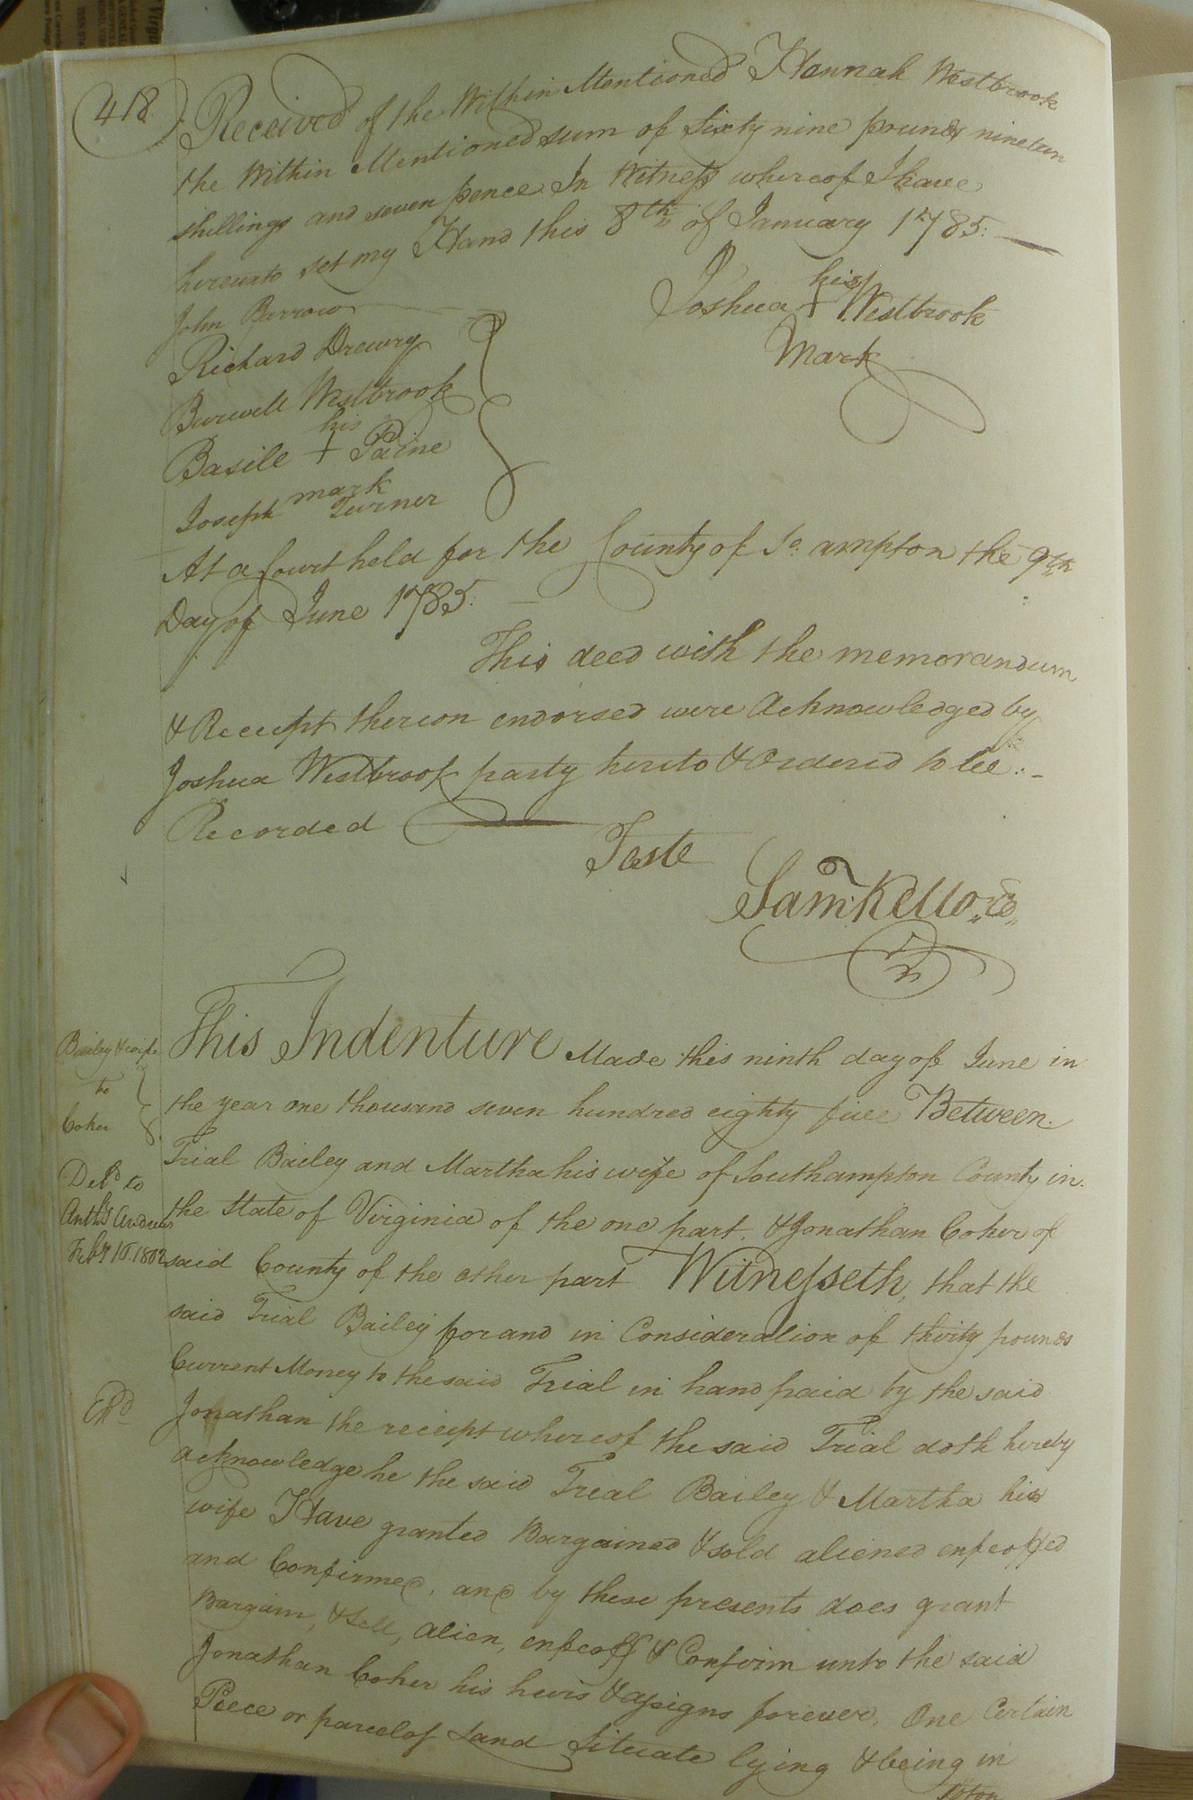 418
Received of the Within Mentioned Hannah Westbrook
the Within Mentioned sum of Sixty nine pounds nineteen
shillings and seven pence In Witness whereof I have
hereunto set my Hand this 8th of January 1785.
his
Joshua + Westbrook
Mark
John Berrow
Richard Drewry
Burwell Westbrook
his
Basile + Paine
mark
Joseph Turner
At a Court held for the County of So. ampton the 9th
Day of June 1785.
This deed with the memorandum
& Receipt thereon endorsed were Acknowledged by
Joshua Westbrook party hereto & Ordered to be
Recorded
Teste
Sam Kello
Bailey & wife
to
Coker
This Indenture Made this ninth day of June in
the year one thousand seven hundred eighty five Between
Trial Bailey and Martha his wife of Southampton County in
Deld to
Anths Andrews
Feby 10. 1802
the State of Virginia of the one part. & Jonathan Coker of
said County of the other part Witnesseth, that the
said Trial Bailey for and in Consideration of thirty pounds
Current Money to the said Trial in hand paid by the said
Exd
Jonathan the receipt whereof the said Trial doth hereby
acknowledge he the said Trial Bailey & Martha his
wife Have granted Bargained & sold aliened enfeoffed
and Confirmed, and by these presents does grant
Bargain, & Sell, alien, enfeoff & Confirm unto the said
Jonathan Coker his heirs & assigns forever, One Certain
Piece or parcel of Land Situate lying & being in